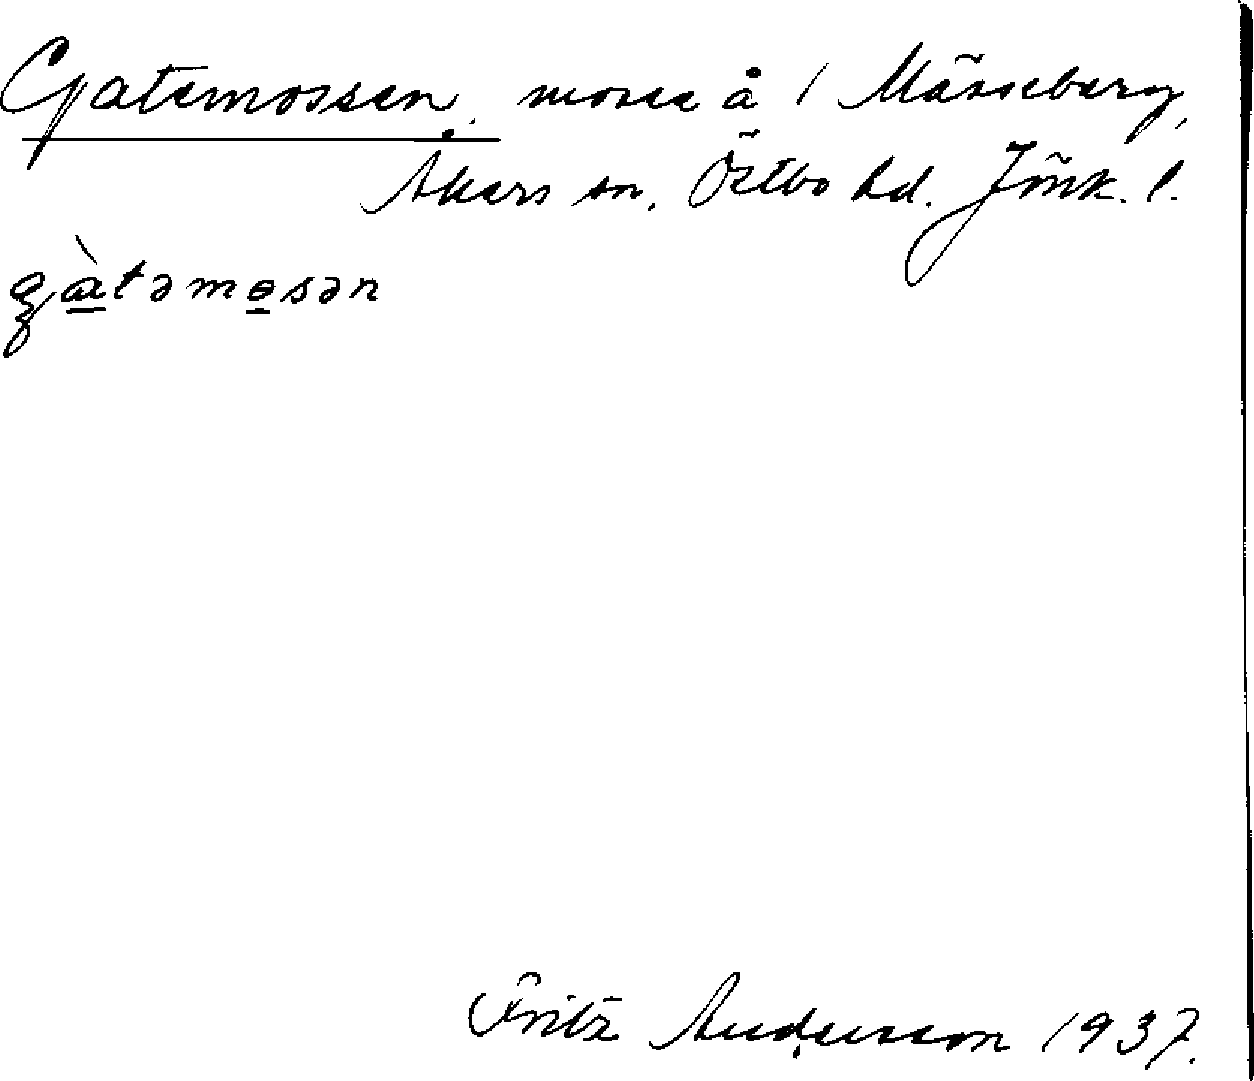 Gatemossen, mosse å 1 Mässeberg,
Åkers sn, Östbo hd. Jönk. l.
gàtəmɵsən
Fritz Andersson 1937.